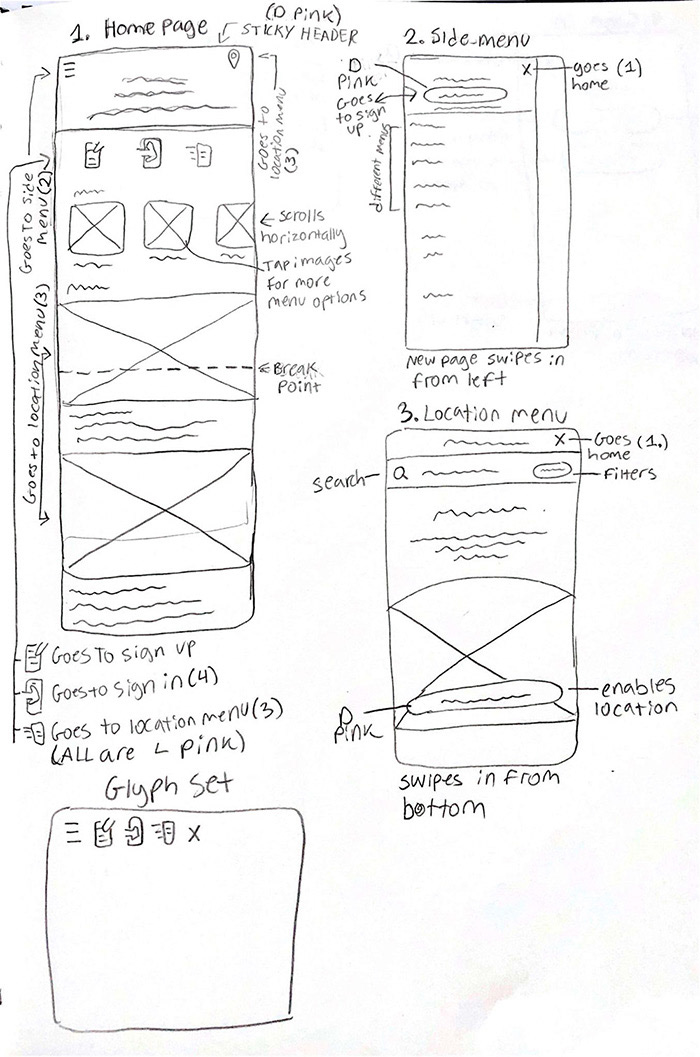 1. Home Page
(D Pink)
STICKY HEADER
Goes to
location menu
(3)
Goes to side
menu (2)
Goes to location menu (3)
← scrolls
horizontally
Tap images
for more
menu options
← Break
Point
Goes To sign up
Goes to sign in (4)
Goes to location menu (3)
(ALL are L pink)
Glyph Set
X
2. Side-menu
D
Pink
Goes
to sign
up.
X
goes (1)
home
different menus
New page swipes in
from left
3. Location menu
X
Goes (1.)
home
search
Filters
enables
location
D
Pink
swipes in from
bottom